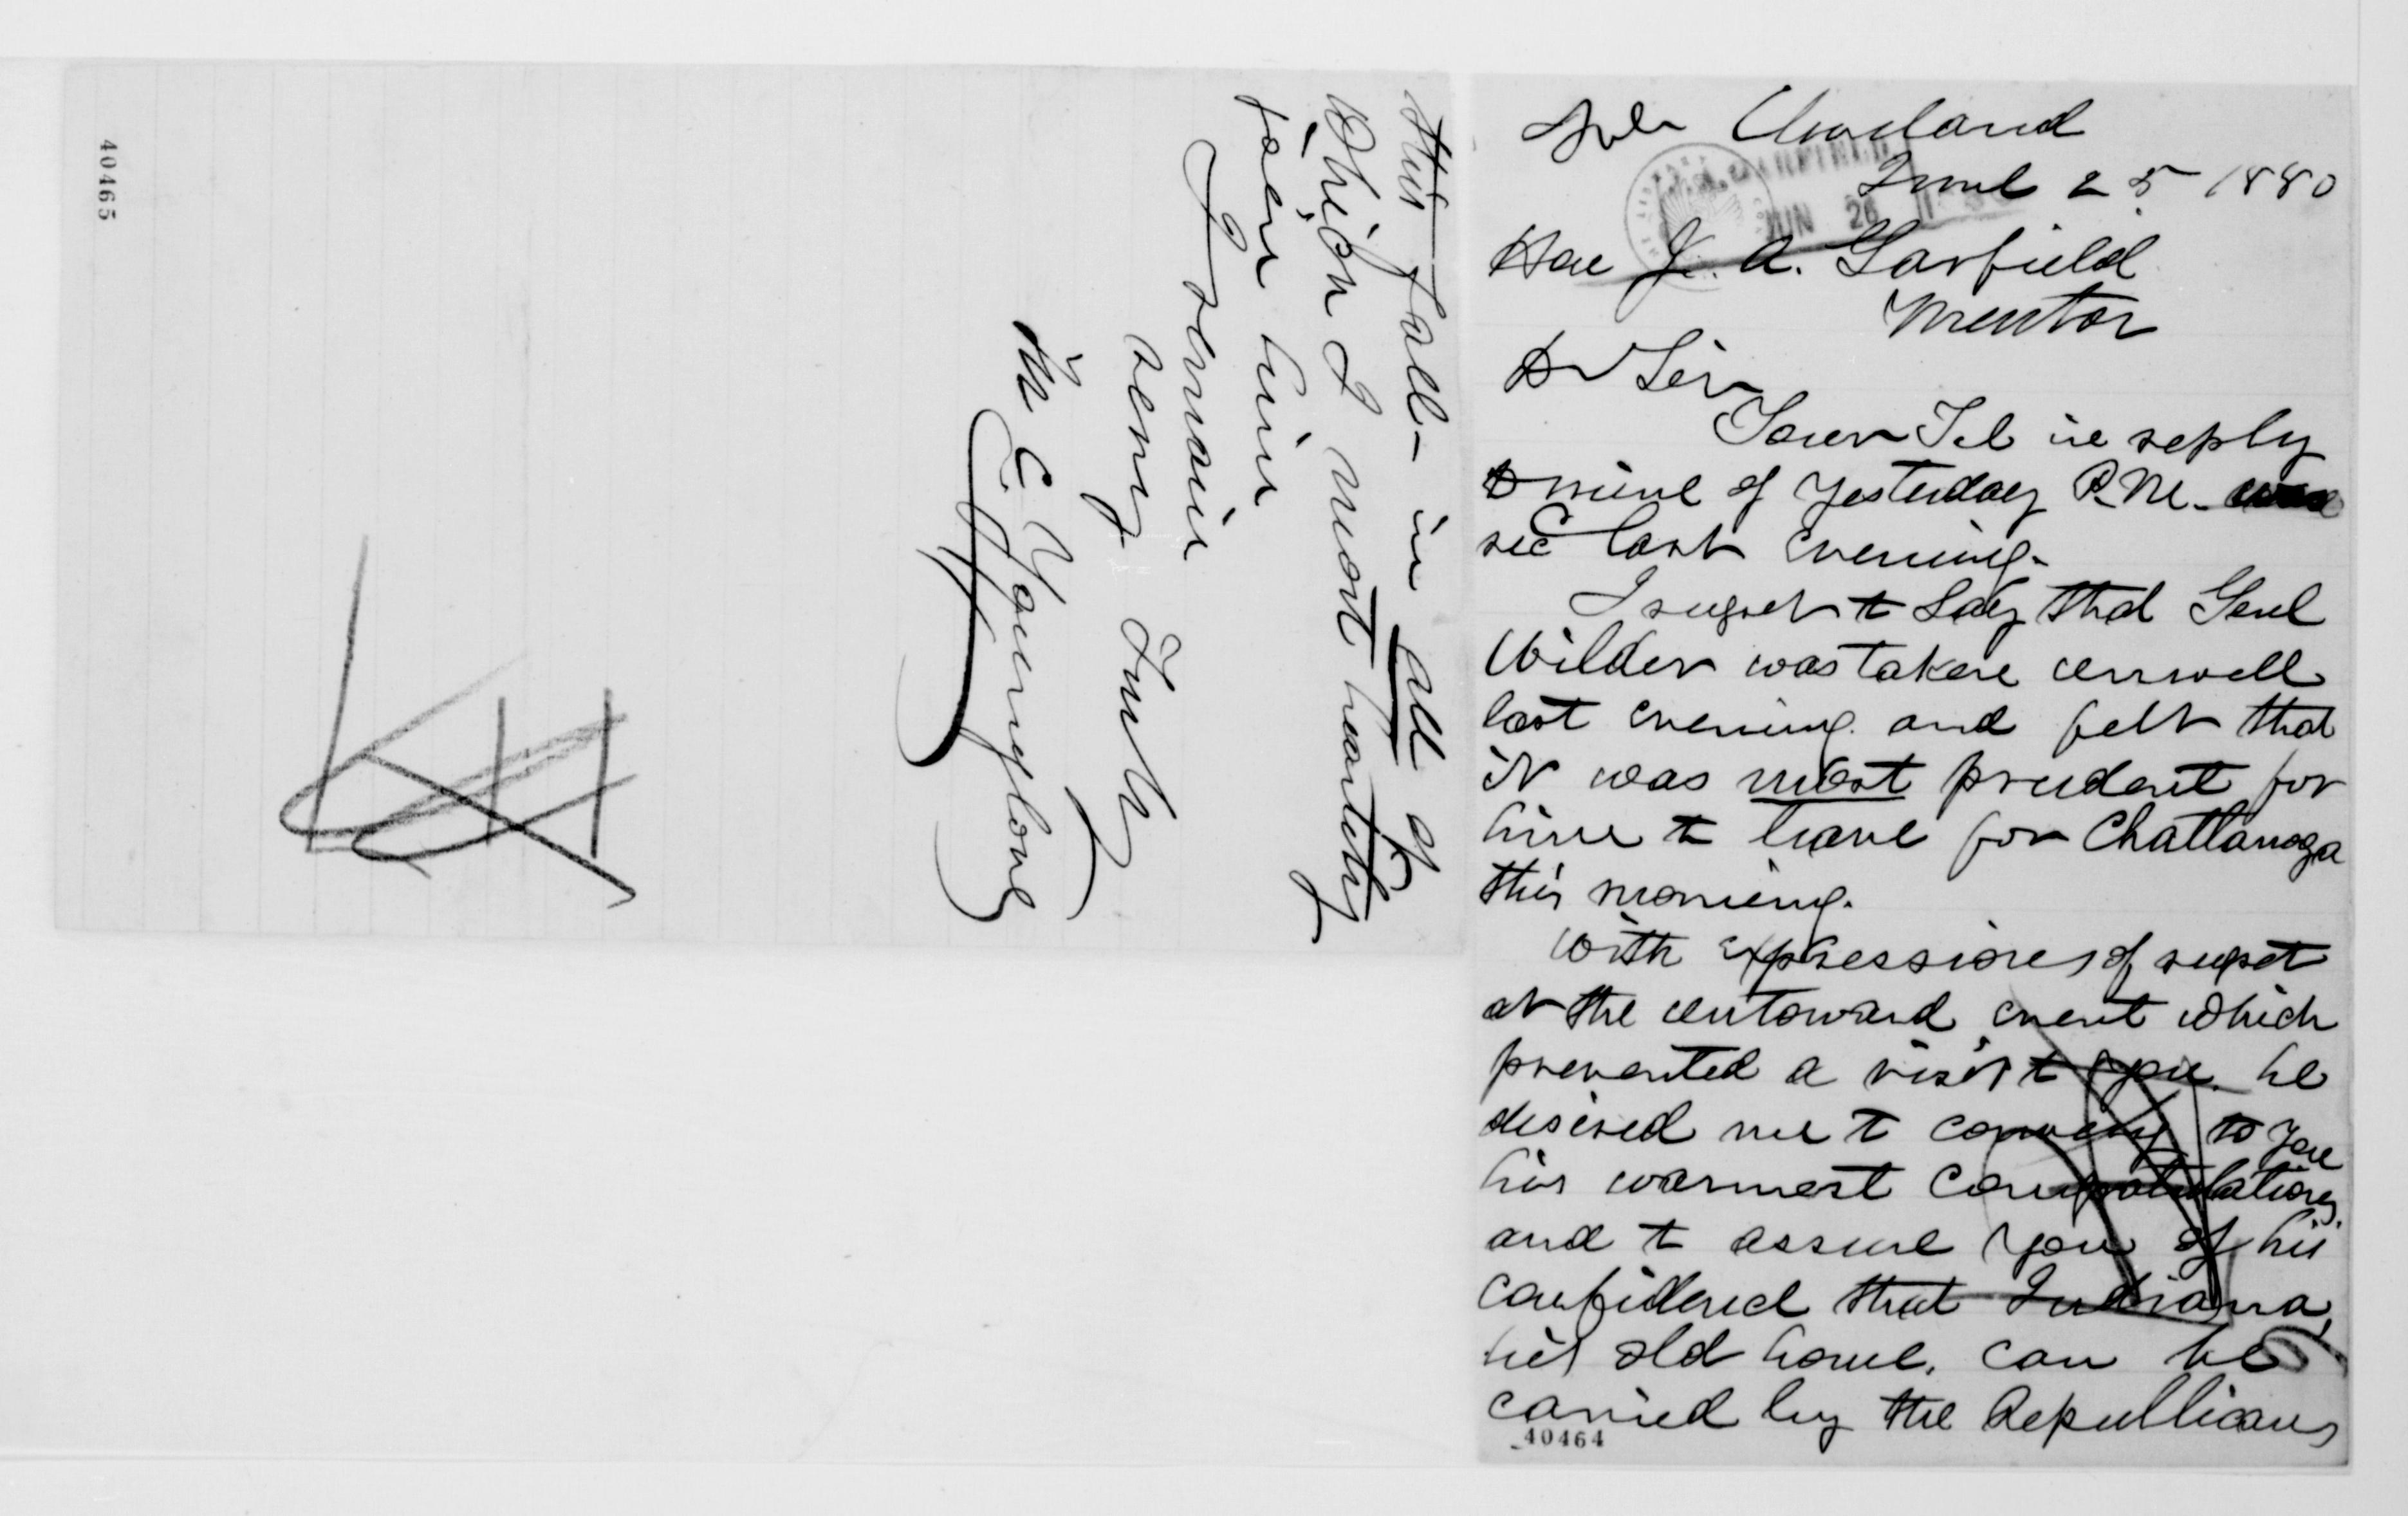 Cleveland
June 25 1880
Hon J. A. Garfield
Mentor
Dr Sir
Your Tel in reply
to mine of yesterday P.M. was
rec last evening.
I regret to say that Genl
Wilder was taken unwell
last evening and felt that
it was most prudent for
him to leave for Chattanooga
this morning.
With expressions of regret
at the untoward event which
prevented a visit to you, he
desired me to convey to you
his warmest congratulations,
and to assure you of his
confidence that Indiana,
his old home, can be
carried by the Republicans
40464
this fall - in all of
which I most heartily
join him
I remain
very Truly
M. C. Younglove
40465
JUN 26